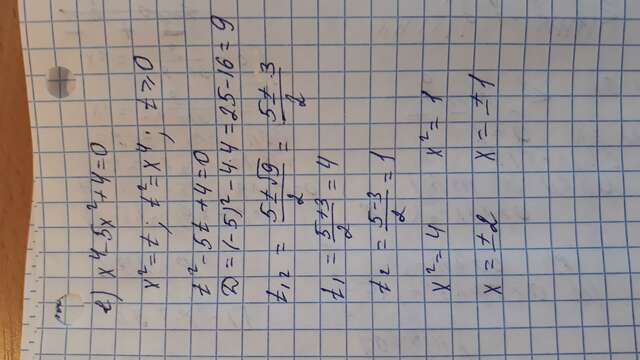 е) x⁴-5x²+4=0
x²=t; t²=x⁴; t≥0
t²-5t+4=0
D=(-5)²-4·4=25-16=9
t₁,₂ = (5±√9)/2 = (5±3)/2
t₁ = (5+3)/2 = 4
t₂ = (5-3)/2 = 1
x²=4 x²=1
x=±2 x=±1